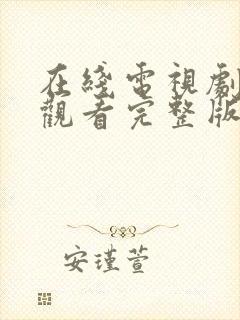 在綫電視劇
觀看完整版
安瑾萱